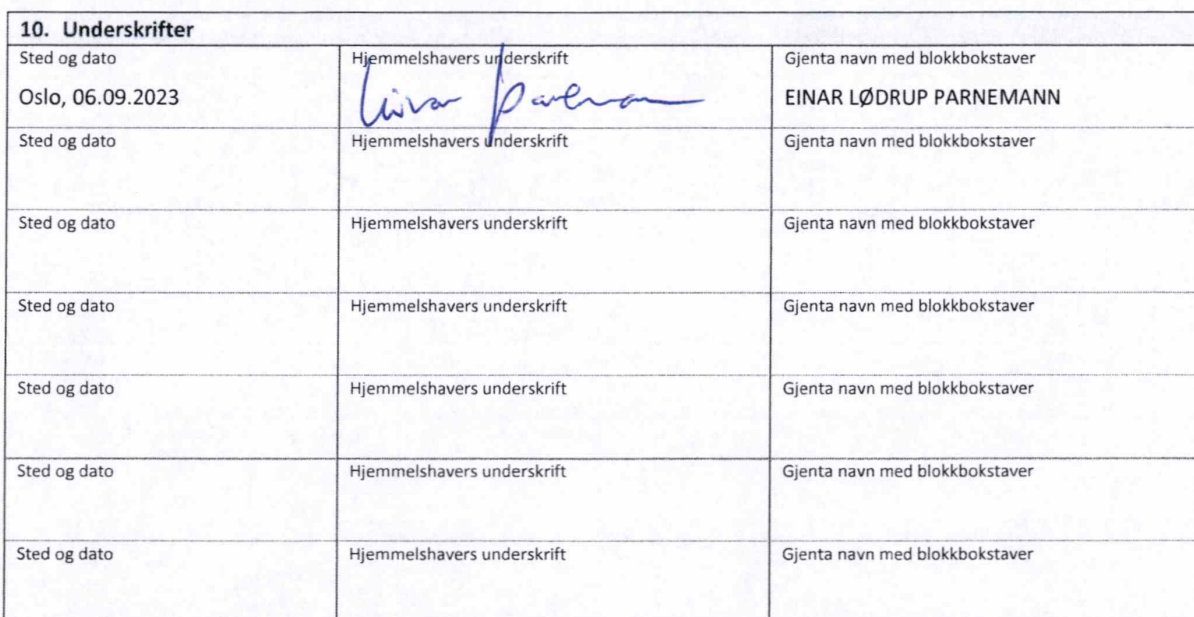 10. Underskrifter
Sted og dato Hjemmelshavers underskrift Gjenta navn med blokkbokstaver
Oslo, 06.09.2023 Einar Parnemann EINAR LØDRUP PARNEMANN
Sted og dato Hjemmelshavers underskrift Gjenta navn med blokkbokstaver
Sted og dato Hjemmelshavers underskrift Gjenta navn med blokkbokstaver
Sted og dato Hjemmelshavers underskrift Gjenta navn med blokkbokstaver
Sted og dato Hjemmelshavers underskrift Gjenta navn med blokkbokstaver
Sted og dato Hjemmelshavers underskrift Gjenta navn med blokkbokstaver
Sted og dato Hjemmelshavers underskrift Gjenta navn med blokkbokstaver